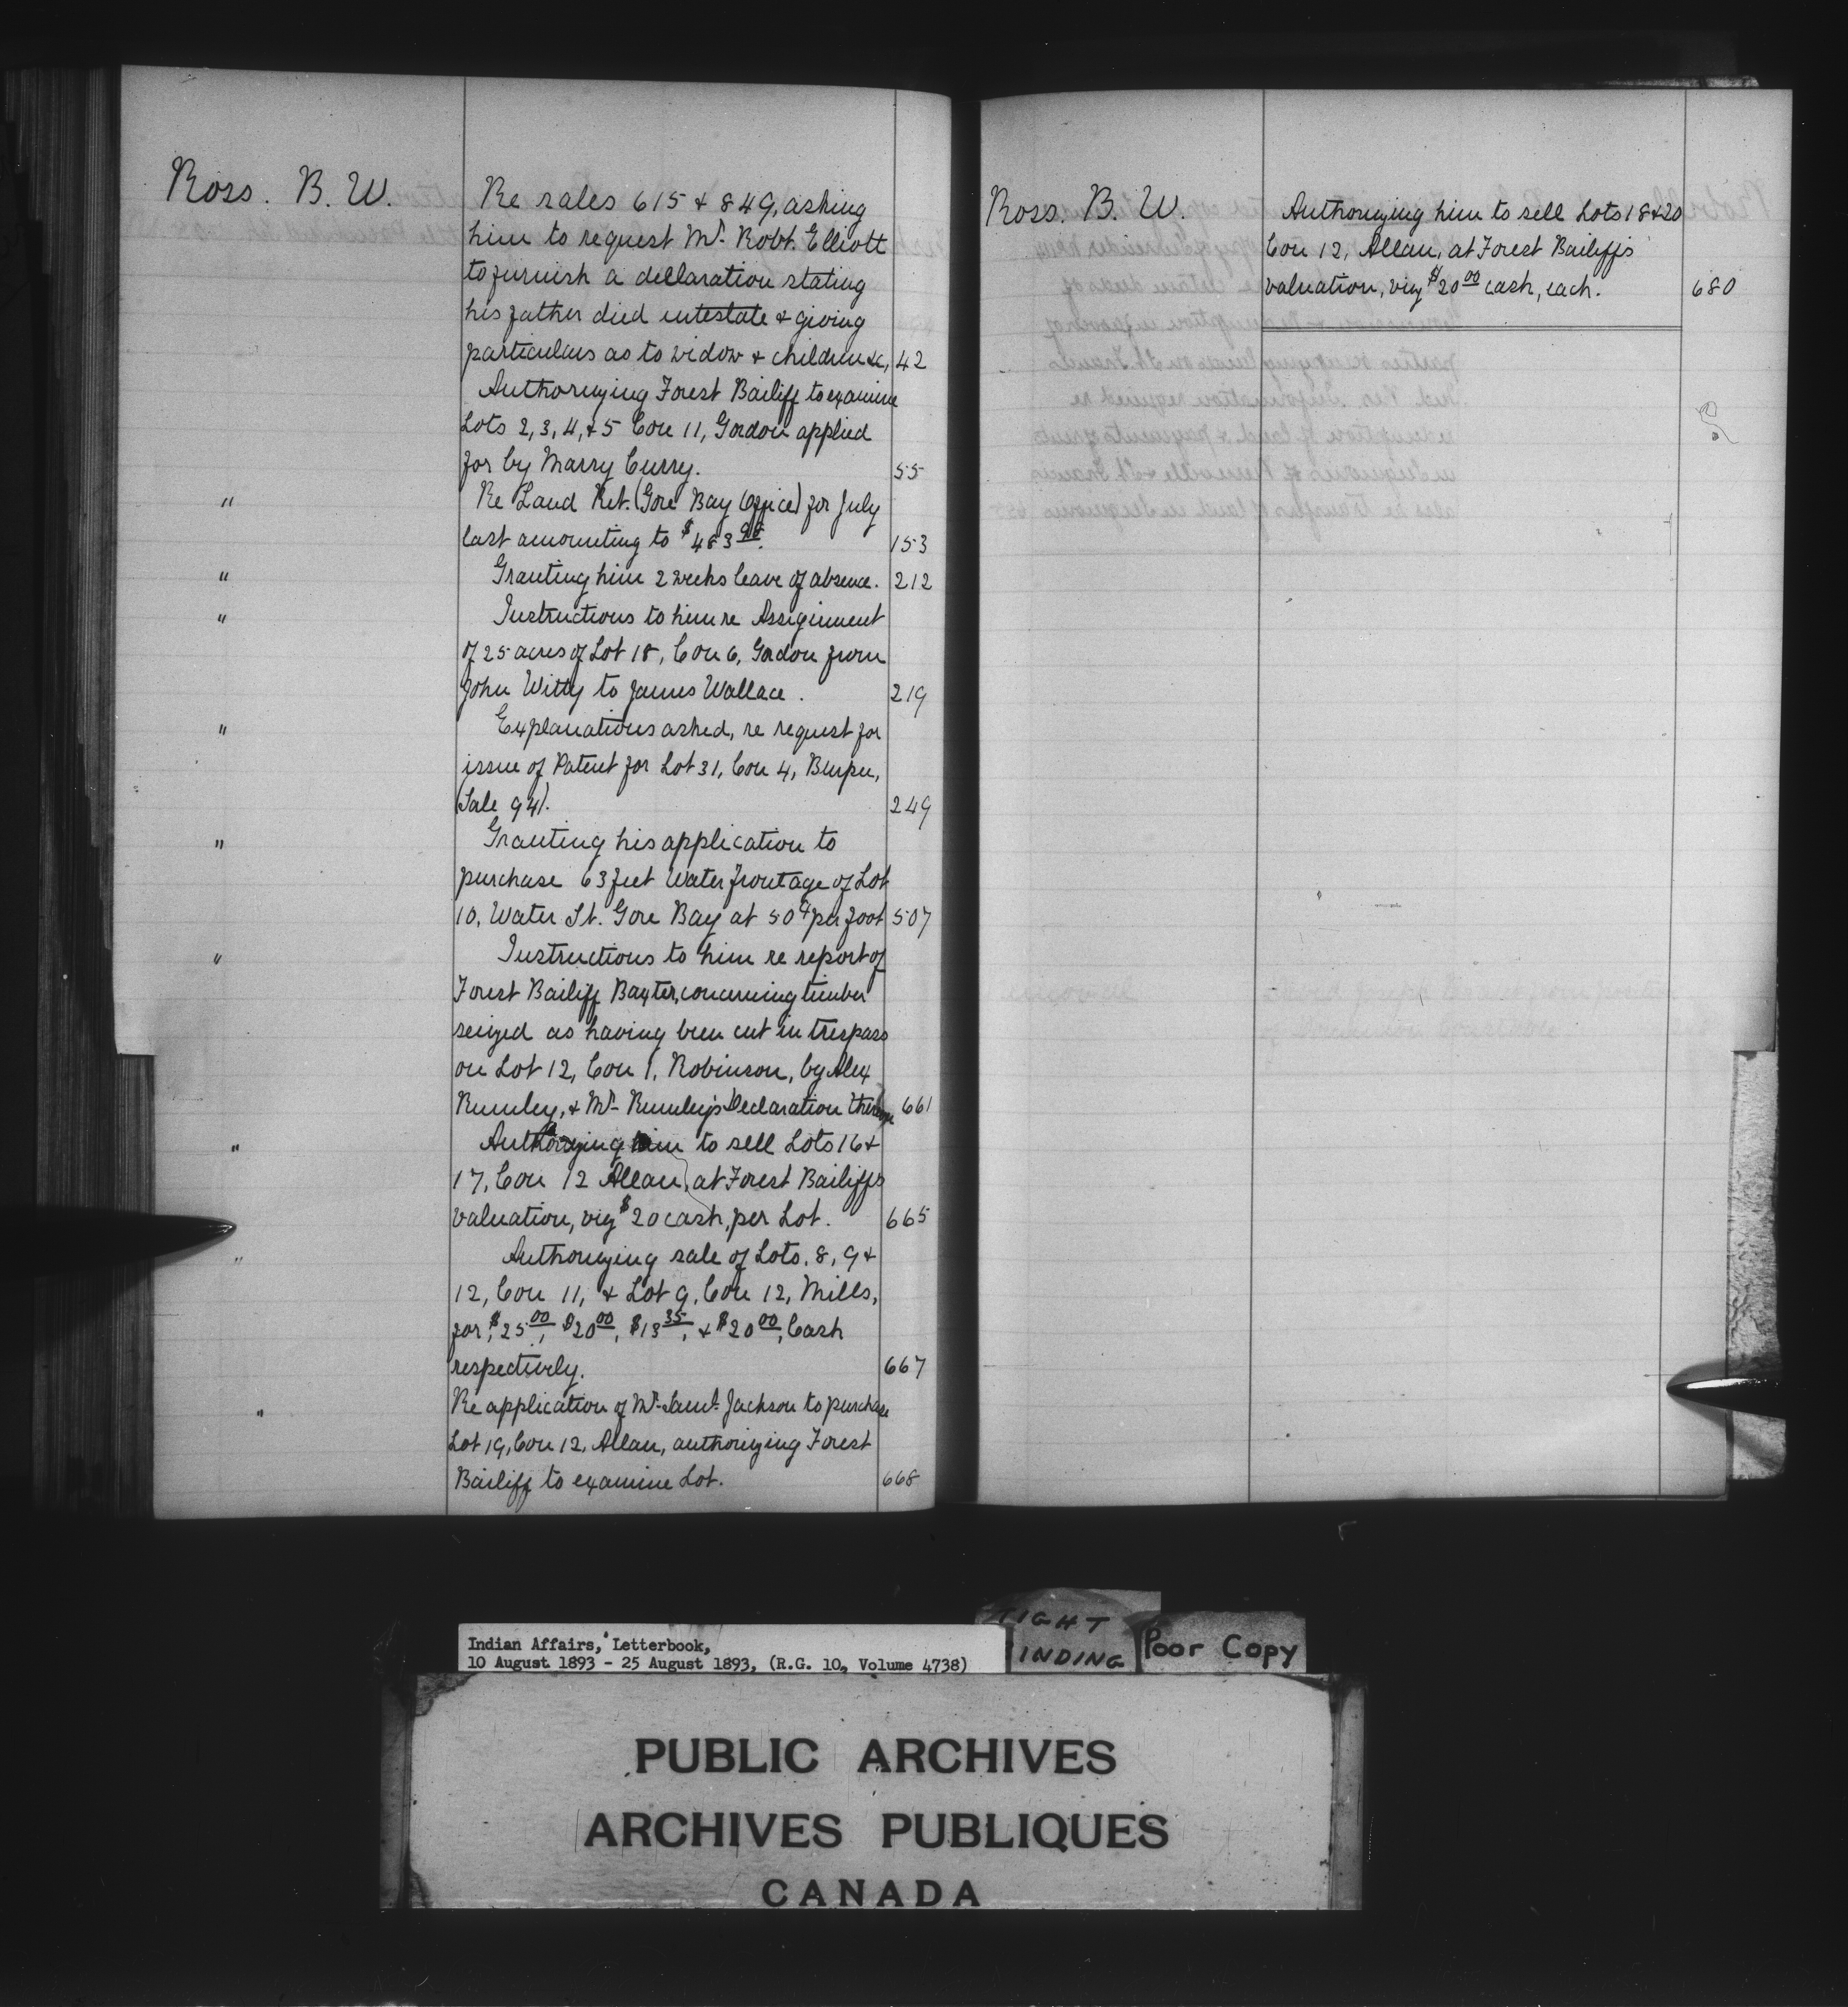 Ross. B. W.
Re sales 615 & 849, asking
him to request Mr. Robt. Elliott
to furnish a declaration stating
his father died intestate & giving
particulars as to widow & children &c, 42
Authorizing Forest Bailiff to examine
Lots 2, 3, 4, & 5 Con 11, Gordon applied
for by Marry Curry. 55
" Re Land Ret. (Gore Bay Office) for July
last amounting to $483 153
" Granting him 2 weeks leave of absence. 212
" Instructions to him re Assignment
of 25 acres of Lot 18, Con 6, Gordon from
John Witty to James Wallace. 219
" Explanations asked, re request for
issue of Patent for Lot 31, Con 4, Burpee,
(Sale 941). 249
" Granting his application to
purchase 63 feet Water frontage of Lot
10, Water St. Gore Bay at 50¢ per foot 507
" Instructions to him re report of
Forest Bailiff Baxter, concerning timber
seized as having been cut in trespass
on Lot 12, Con 1, Robinson, by Alex
Rumley, & Mr. Rumley's Declaration 661
" Authorizing him to sell Lots 16 &
17, Con 12 Allan, at Forest Bailiff's
valuation, viz $20 cash, per Lot. 665
" Authorizing sale of Lots. 8, 9 &
12, Con 11, & Lot 9, Con 12, Mills,
for, $25.00, $20.00, $13.35, & $20.00, Cash
respectively. 667
" Re application of Mr. Saml. Jackson to purchase
Lot 19, Con 12, Allan, authorizing Forest
Bailiff to examine Lot. 668
Ross. B. W.
Authorizing him to sell Lots 18 & 20
Con 12, Allan, at Forest Bailiff's
valuation, viz $20.00 cash, each. 680
TIGHT
BINDING
Poor Copy
Indian Affairs, Letterbook,
10 August 1893 - 25 August 1893, (R.G. 10, Volume 4738)
PUBLIC ARCHIVES
ARCHIVES PUBLIQUES
CANADA